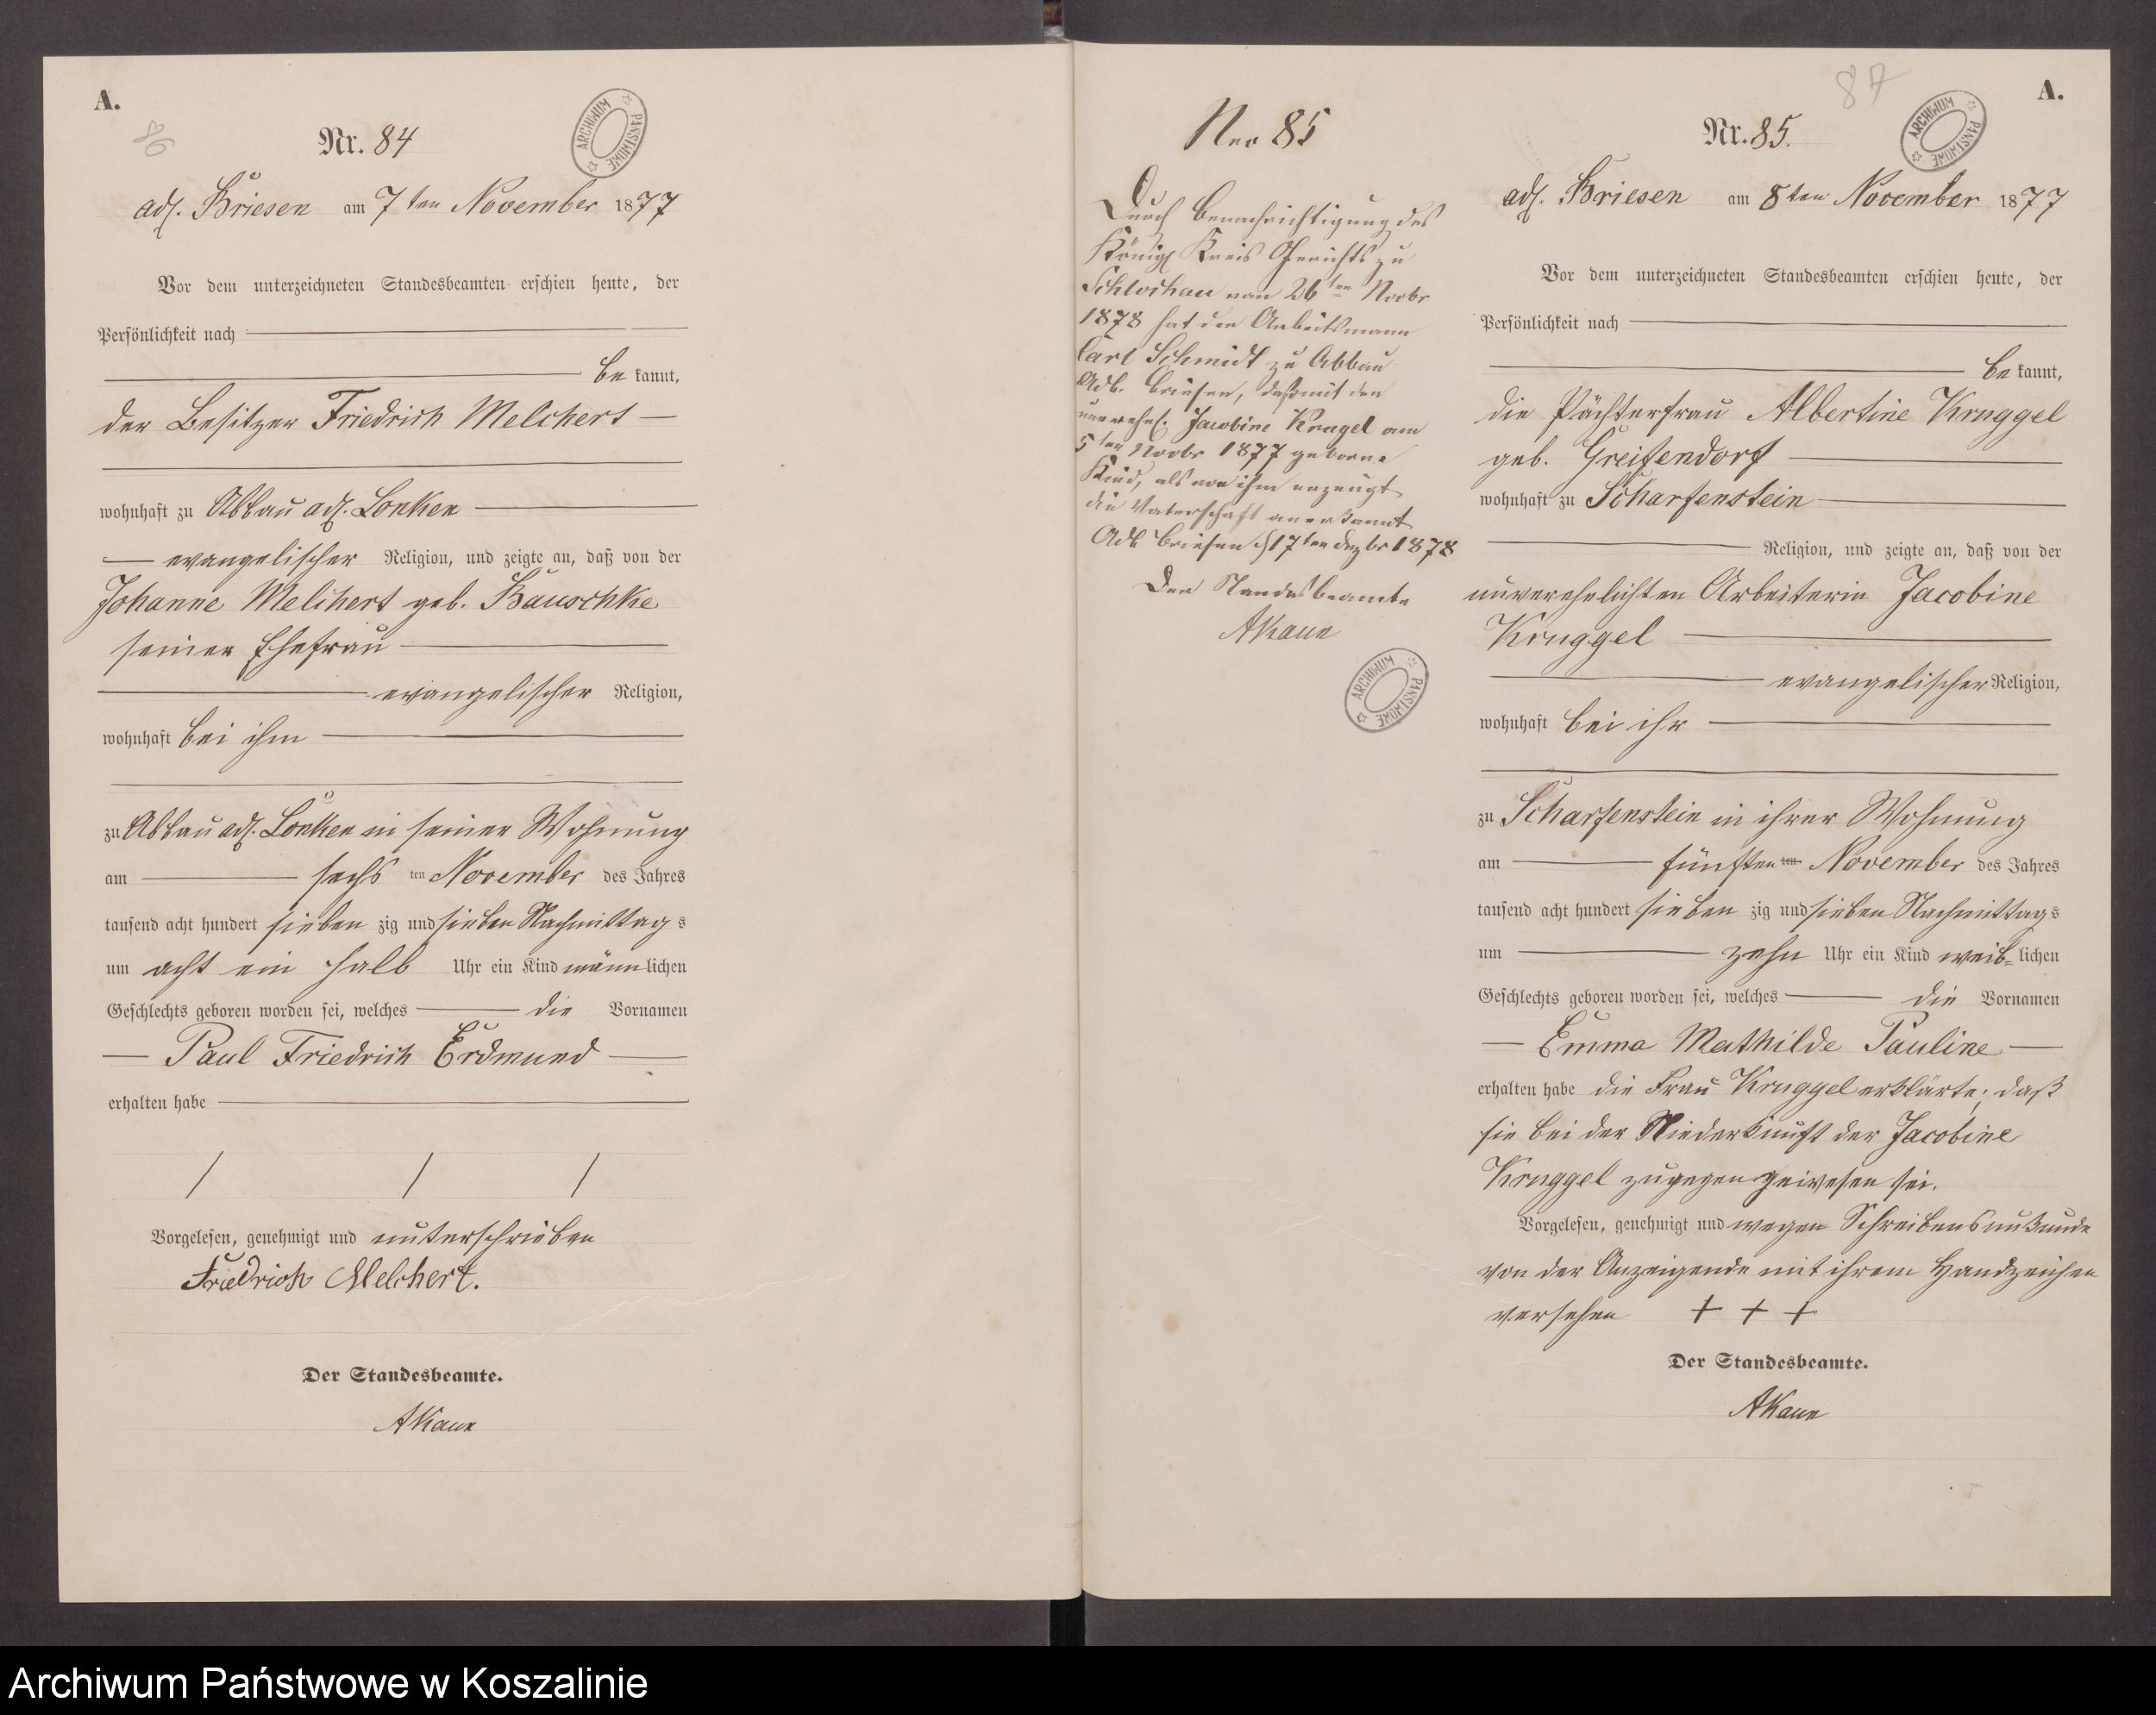 A.
86
Nr. 84
ARCHIWUM PAŃSTWOWE
adl. Briesen am 7ten November 1877
Vor dem unterzeichneten Standesbeamten erschien heute, der
Persönlichkeit nach
bekannt,
der Besitzer Friedrich Melchert
wohnhaft zu Abbau adl. Lonken
evangelischer Religion, und zeigte an, daß von der
Johanne Melchert geb. Bauschke
seiner Ehefrau
evangelischer Religion,
wohnhaft bei ihm
zu Abbau adl. Lonken in seiner Wohnung
am sechsten November des Jahres
tausend acht hundert siebenzig und sieben Nachmittags
um acht ein halb Uhr ein Kind männlichen
Geschlechts geboren worden sei, welches die Vornamen
Paul Friedrich Erdmund
erhalten habe
Vorgelesen, genehmigt und unterschrieben
Friedrich Melchert.
Der Standesbeamte.
AKaun
Nro 85
Durch Benachrichtigung des
Königl Kreis Gerichts zu
Schlochau vom 26ten Novbr
1878 hat der Arbeitsmann
Carl Schmidt zu Abbau
Adl. Briesen, das mit der
unverehel. Jacobine Krugel am
5ten Novbr 1877 geborne
Kind, als von ihm erzeugt
die Vaterschaft anerkannt
Adl Briesen d 17ten Dezbr 1878
Der Standesbeamte
AKaun
ARCHIWUM PAŃSTWOWE
87
A.
Nr. 85.
ARCHIWUM PAŃSTWOWE
adl. Briesen am 8ten November 1877
Vor dem unterzeichneten Standesbeamten erschien heute, der
Persönlichkeit nach
bekannt,
die Pächterfrau Albertine Kruggel
geb. Greifendorf
wohnhaft zu Scharfenstein
Religion, und zeigte an, daß von der
unverehelichten Arbeiterin Jacobine
Kruggel
evangelischer Religion,
wohnhaft bei ihr
zu Scharfenstein in ihrer Wohnung
am fünften ten November des Jahres
tausend acht hundert siebenzig und sieben Nachmittags
um zehn Uhr ein Kind weib=lichen
Geschlechts geboren worden sei, welches die Vornamen
Emma Mathilde Pauline
erhalten habe die Frau Kruggel erklärte, daß
sie bei der Niederkunft der Jacobine
Kruggel zugegen gewesen sei.
Vorgelesen, genehmigt und wegen Schreibensunkunde
von der Anzeigende mit ihrem Handzeichen
versehen + + +
Der Standesbeamte.
AKaun
Archiwum Państwowe w Koszalinie